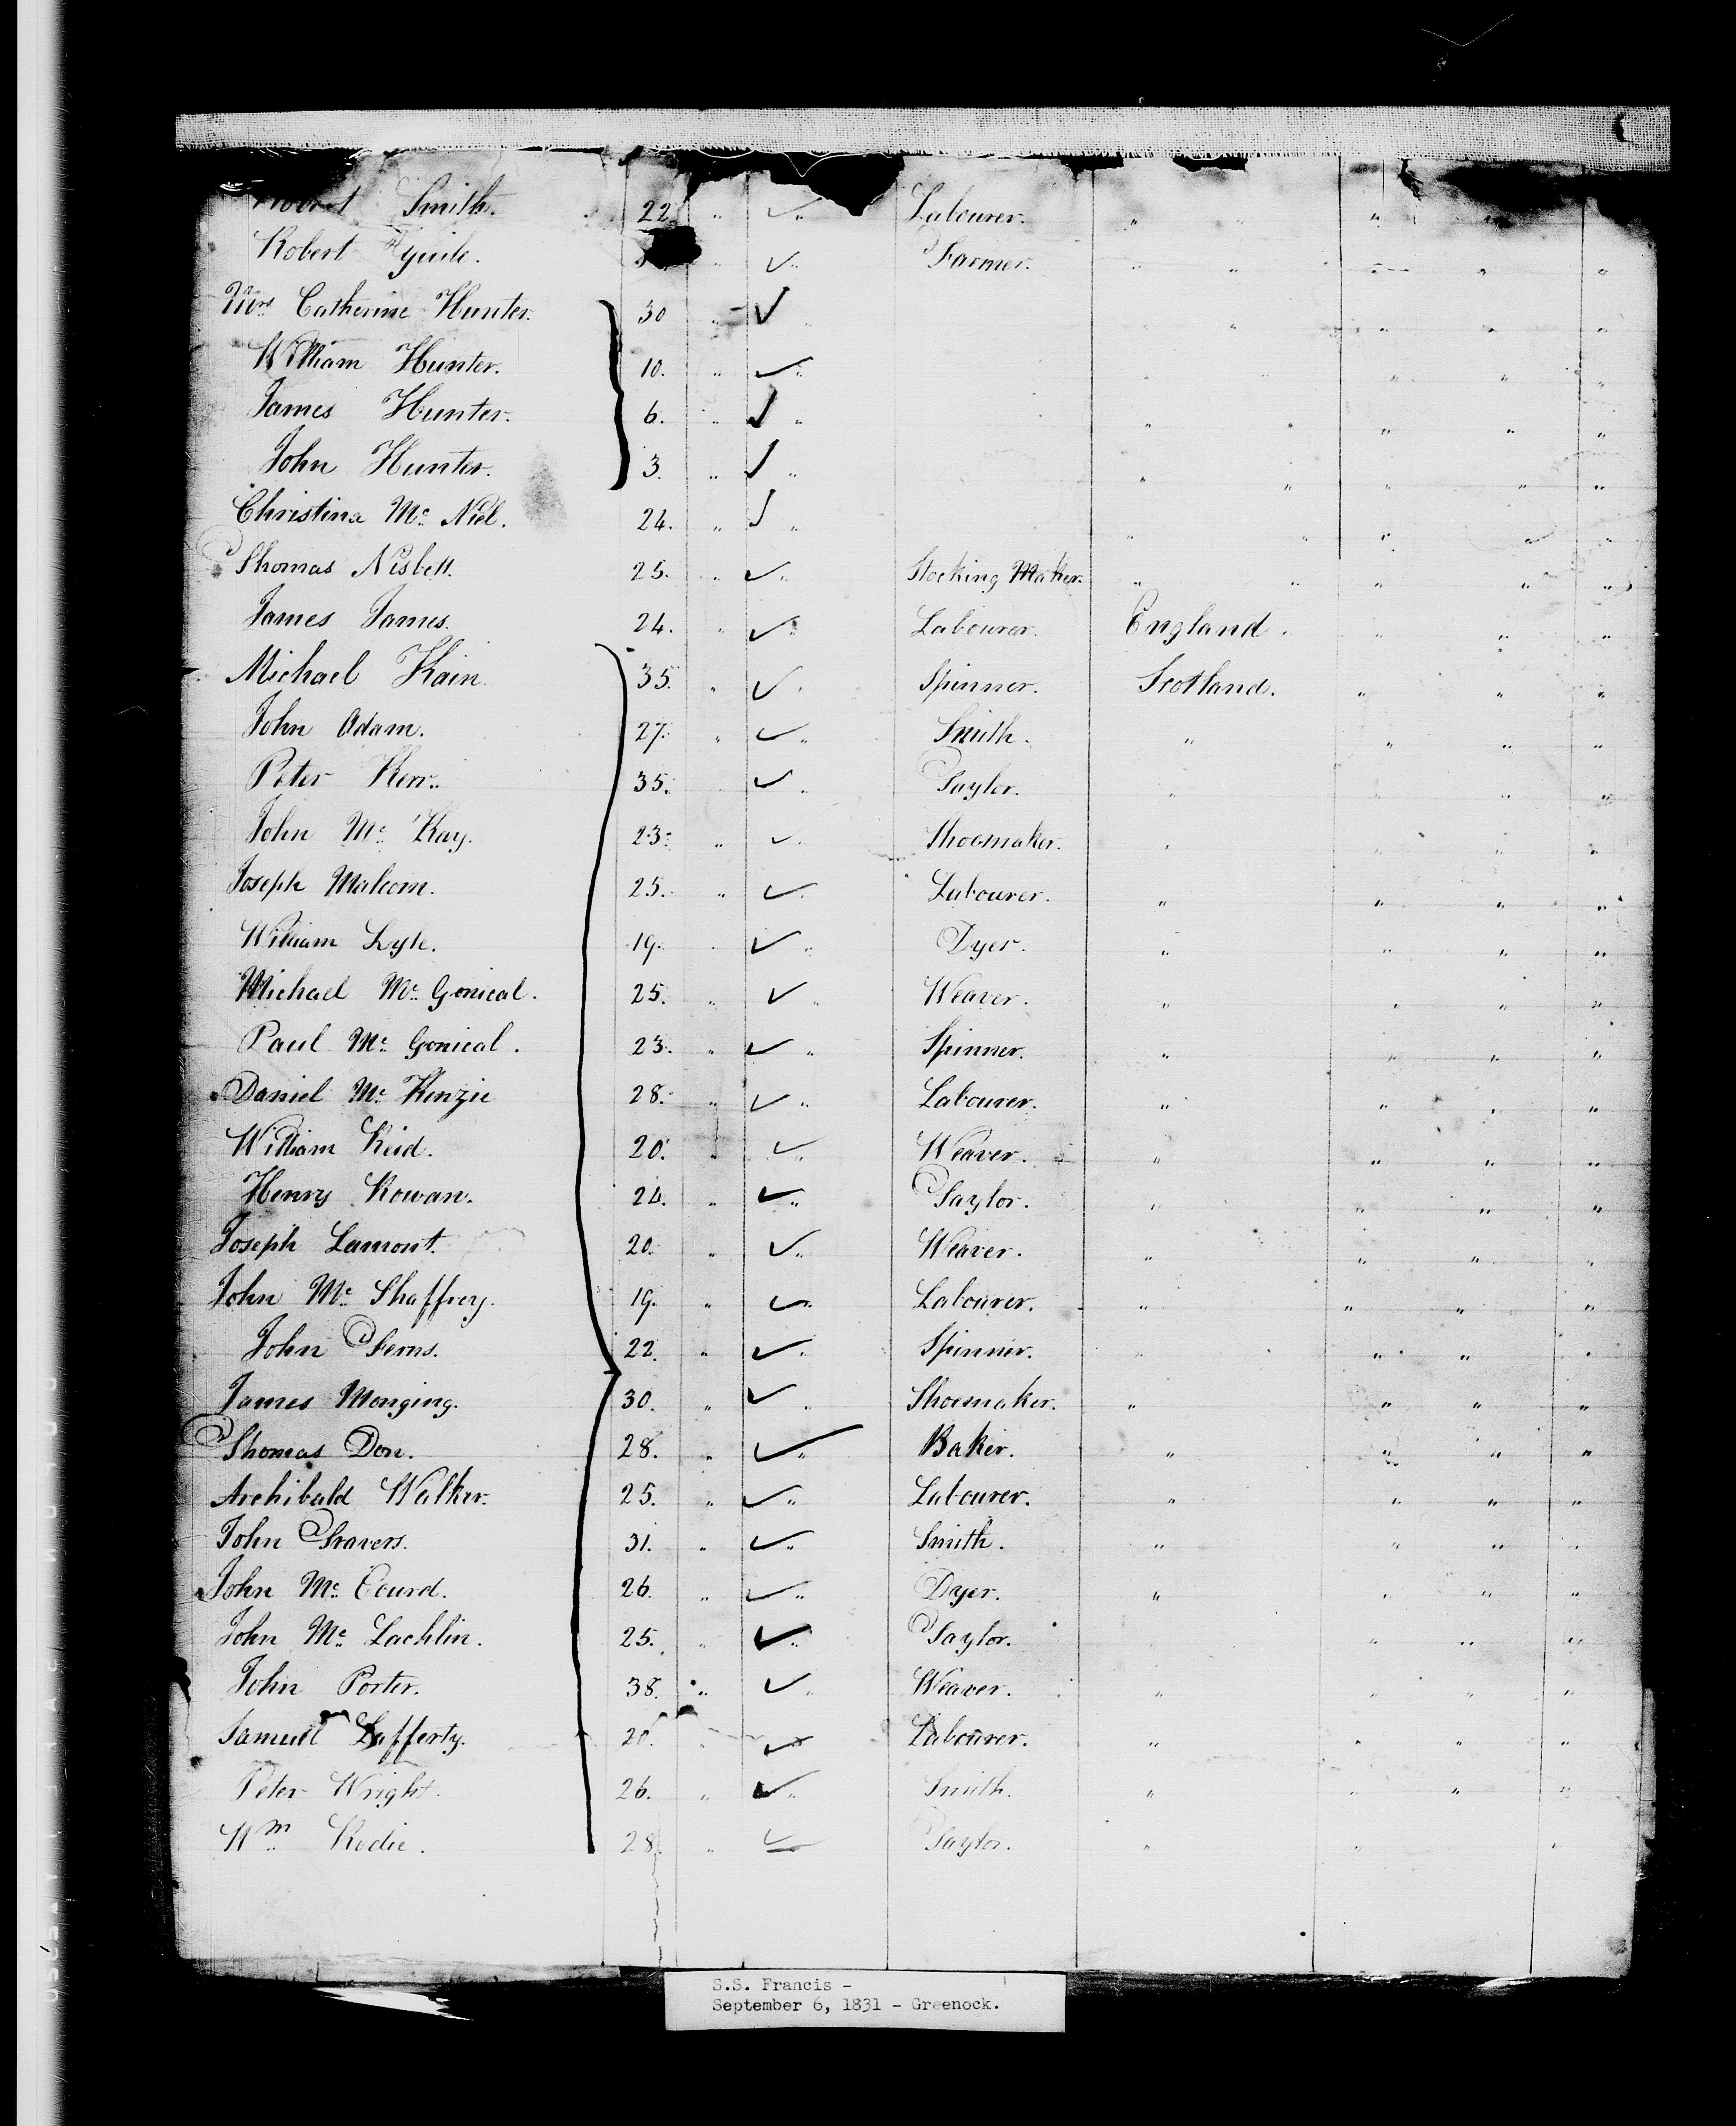 Robert Smith. 22. " " Labourer. " " " "
Robert " " Farmer. " " " " "
Mrs Catherine Hunter. 30 " " " " " " "
William Hunter. 10. " " " " " " "
James Hunter. 6. " " " " " " "
John Hunter. 3. " " " " " " "
Christina Mc Niel. 24. " " " " " " "
Thomas Nisbett. 25. " " Stocking Maker. " " " " "
James James. 24. " " Labourer. England. " " "
Michael Kain. 35. " " Spinner. Scotland. " " "
John Adam. 27. " " Smith. " " " "
Peter Kerr. 35. " " Taylor. " " " "
John Mc Kay. 23. " " Shoemaker. " " " "
Joseph Malcom. 25. " " Labourer. " " " "
William Lyle. 19. " " Dyer. " " " "
Michael Mc Gonical. 25. " " Weaver. " " " "
Paul Mc Gonical. 23. " " Spinner. " " " "
Daniel Mc Kenzie 28. " " Labourer. " " " "
William Reid. 20. " " Weaver. " " " "
Henry Rowan. 24. " " Taylor. " " " "
Joseph Lamont. 20. " " Weaver. " " " "
John Mc Shaffrey. 19. " " Labourer. " " " "
John Ferns. 22. " " Spinner. " " " "
James Monging. 30. " " Shoemaker. " " " "
Thomas Don. 28. " " Baker. " " " "
Archibald Walker. 25. " " Labourer. " " " "
John Travers. 31. " " Smith. " " " "
John Mc Courd. 26. " " Dyer. " " " "
John Mc Lachlin. 25. " " Taylor. " " "
John Porter. 38. " " Weaver. " " " "
Samuel Lafferty. 20. " " Labourer. " " " "
Peter Wright. 26. " " Smith. " " " "
Wm Kedie. 28. " " Taylor. " " "
S.S. Francis -
September 6, 1831 - Greenock.